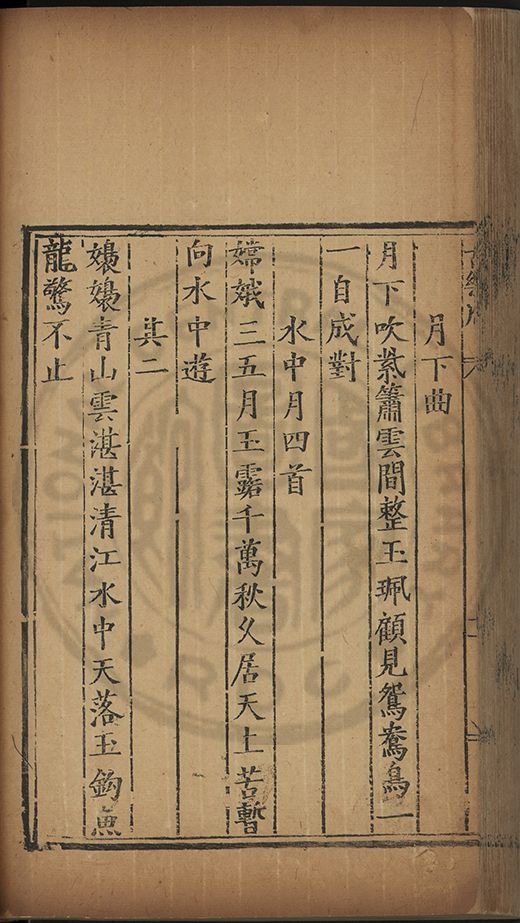 月下曲
月下吹紫簫雲間整玉珮顧見鴛鴦鳥一
一自成對
水中月四首
嫦娥三五月玉露千萬秋久居天上苦暫
向水中遊
其二
嬝嬝青山雲湛湛清江水中天落玉鈎魚
龍驚不止